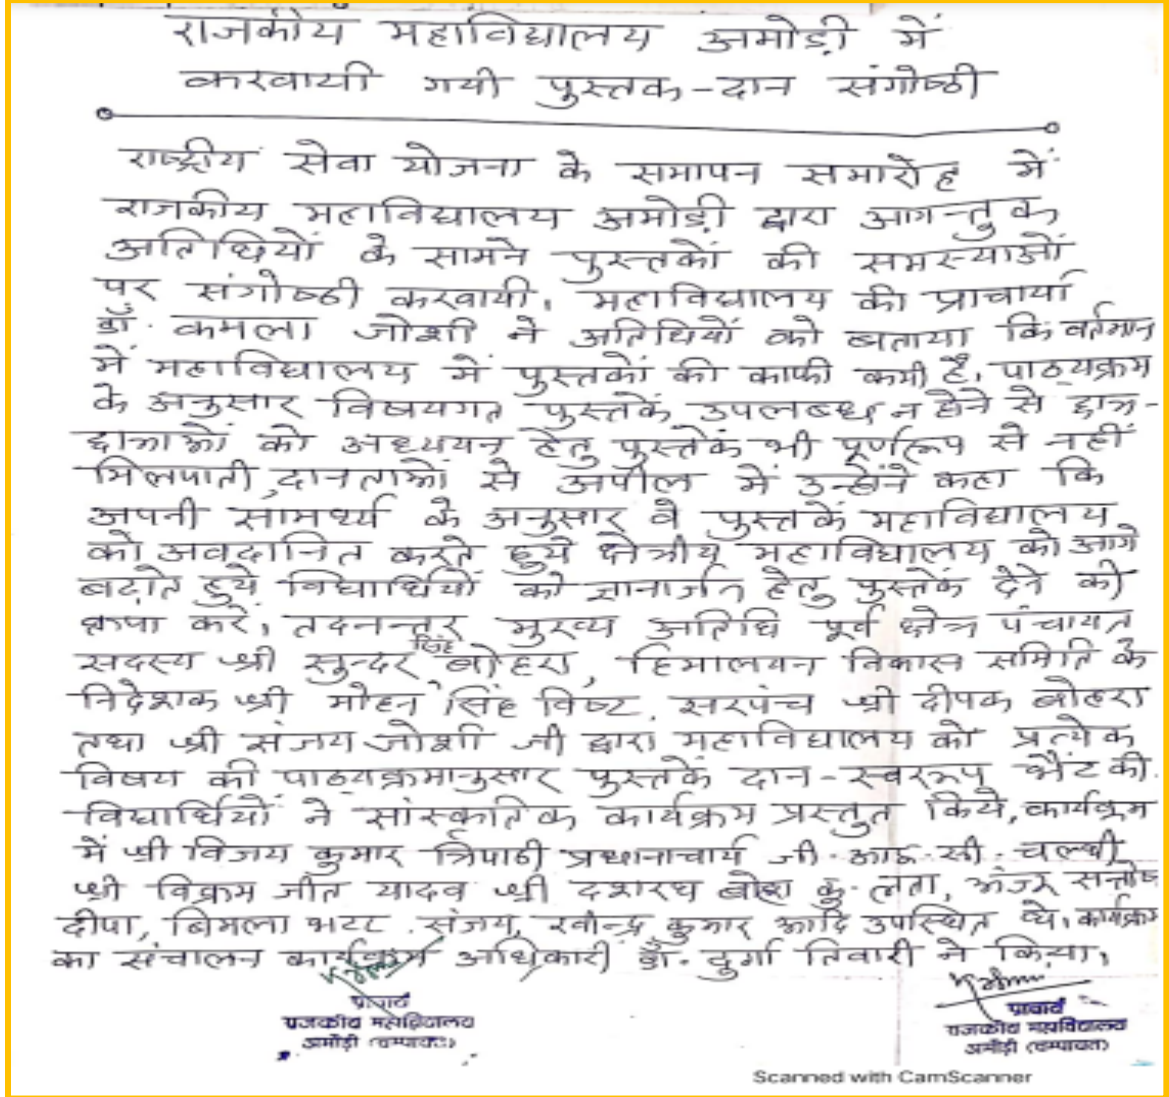 राजकीय महाविद्यालय अमोड़ी में
करवायी गयी पुस्तक-दान संगोष्ठी
राष्ट्रीय सेवा योजना के समापन समारोह में
राजकीय महाविद्यालय अमोड़ी द्वारा आगन्तुक
अतिथियों के सामने पुस्तकों की समस्याओं
पर संगोष्ठी करवायी। महाविद्यालय की प्राचार्या
डॉ. कमला जोशी ने अतिथियों को बताया कि वर्तमान
में महाविद्यालय में पुस्तकों की काफी कमी है, पाठ्यक्रम
के अनुसार विषयगत पुस्तकें उपलब्ध न होने से छात्र-
छात्राओं को अध्ययन हेतु पुस्तकें भी पूर्णरूप से नहीं
मिलपाती, दानताओं से अपील में उन्होंने कहा कि
अपनी सामर्थ्य के अनुसार वे पुस्तकें महाविद्यालय
को अवदानित करते हुये क्षेत्रीय महाविद्यालय को आगे
बढ़ाते हुये विद्यार्थियों को ज्ञानार्जन हेतु पुस्तकें देने की
कृपा करें। तदनन्तर मुख्य अतिथि पूर्व क्षेत्र पंचायत
सदस्य श्री सुन्दर सिंह बोहरा, हिमालयन विकास समिति के
निदेशक श्री मोहन सिंह विष्ट, सरपंच श्री दीपक बोहरा
तथा श्री संजय जोशी जी द्वारा महाविद्यालय को प्रत्येक
विषय की पाठ्यक्रमानुसार पुस्तकें दान-स्वरूप भेंट की.
विद्यार्थियों ने सांस्कृतिक कार्यक्रम प्रस्तुत किये, कार्यक्रम
में श्री विजय कुमार त्रिपाठी प्रधानाचार्य जी.आई.सी. चल्थी
श्री विक्रम जीत यादव श्री दशरथ बोहरा कु. लता, अंजू सन्तोष
दीपा, बिमला भट्ट. संजय, रवीन्द्र कुमार आदि उपस्थित थे। कार्यक्रम
का संचालन कार्यक्रम अधिकारी डॉ. दुर्गा तिवारी ने किया।
प्राचार्य
राजकीय महाविद्यालय
अमोड़ी (चम्पावत)
प्राचार्य
राजकीय महाविद्यालय
अमोड़ी (चम्पावत)
Scanned with CamScanner